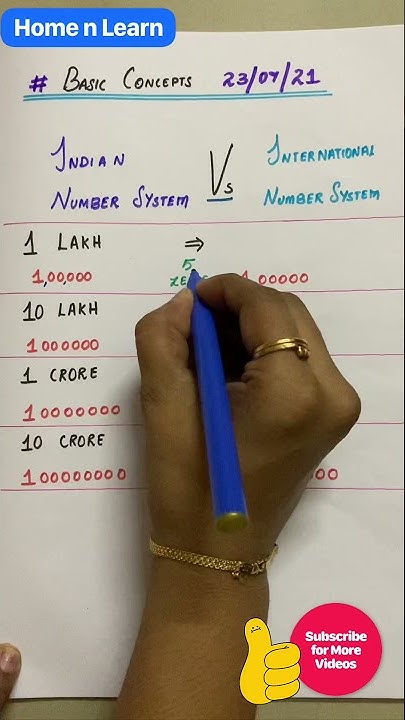 Home n Learn
# BASIC CONCEPTS 23/04/21
INDIAN
NUMBER SYSTEM
Vs
INTERNATIONAL
NUMBER SYSTEM
1 LAKH ⇒
5
1,00,000
1 00000
10 LAKH
1000000
1 CRORE
10000000
10 CRORE
100000000
Subscribe
for More
Videos